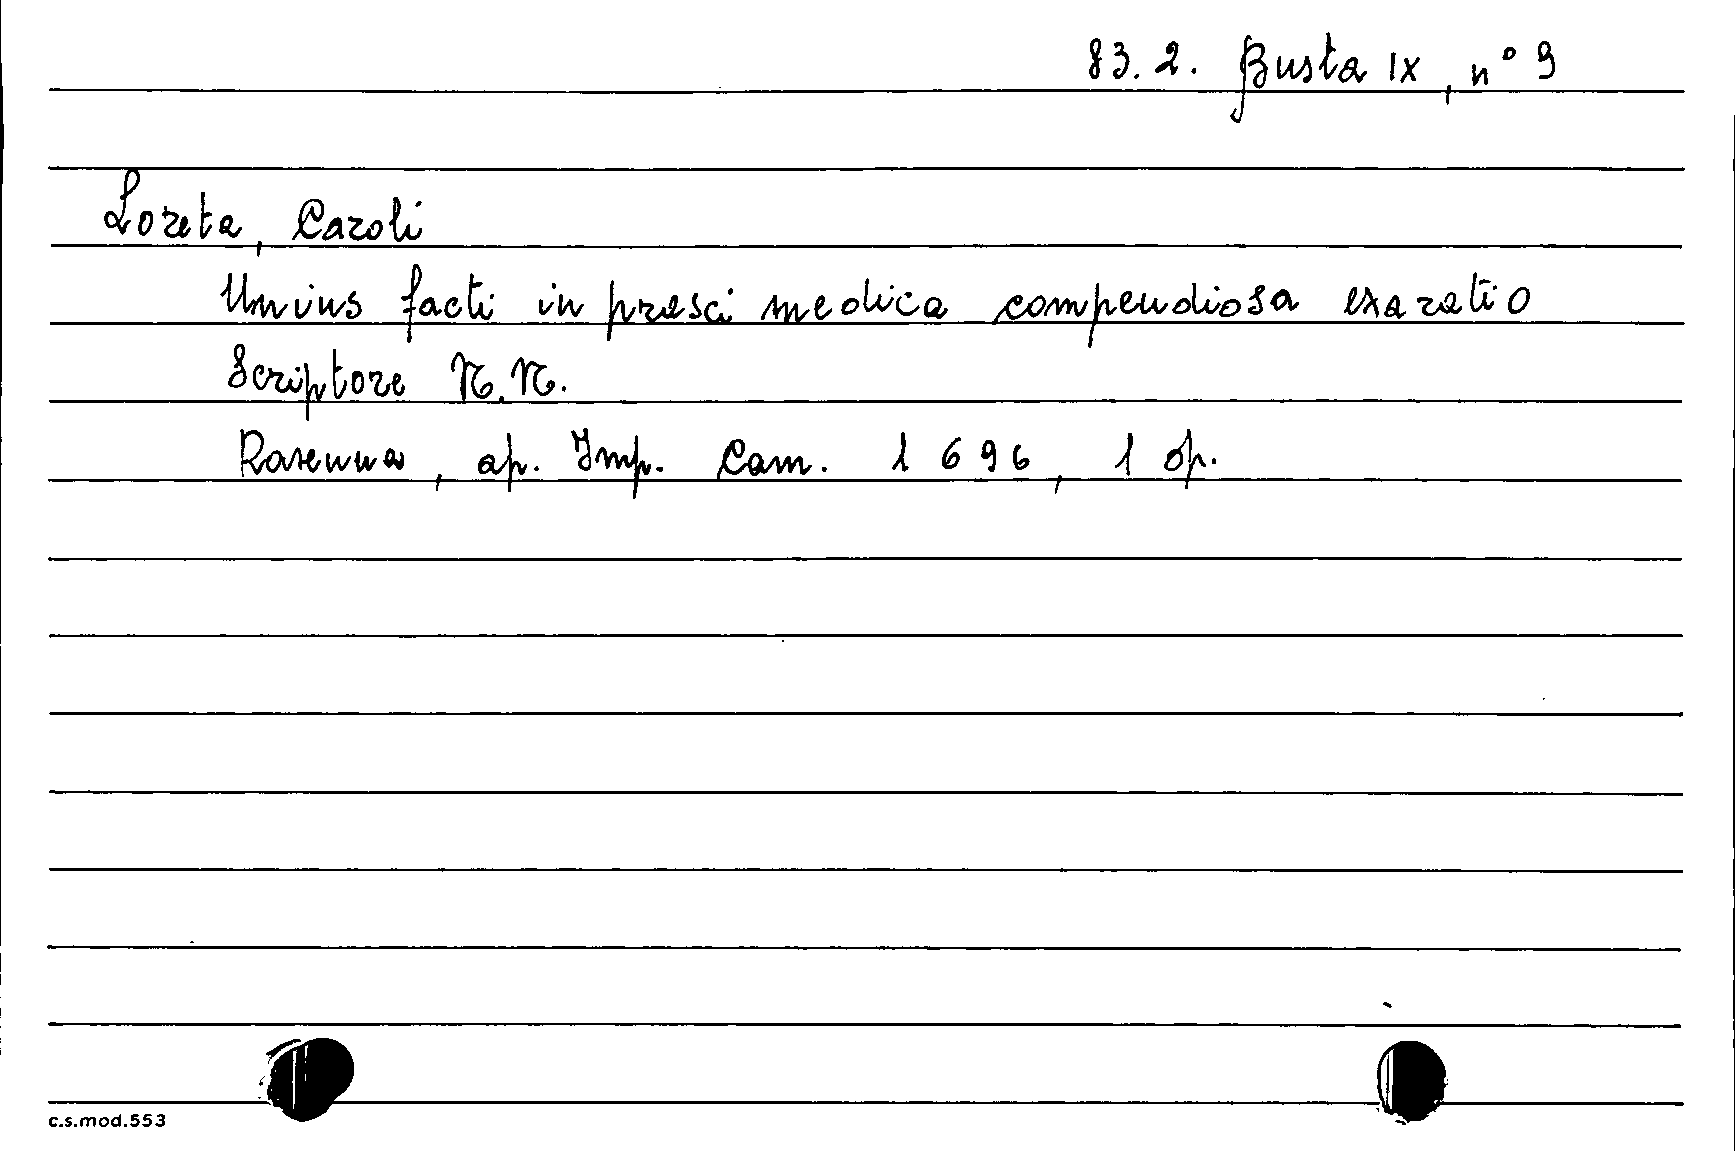 83.2. Busta IX, n° 9
Loreta, Caroli
Unius facti in prasci medica compendiosa exaratio
Scriptore N.N.
Ravenna, ap. Imp. Cam. 1696, 1 op.
c.s.mod.553